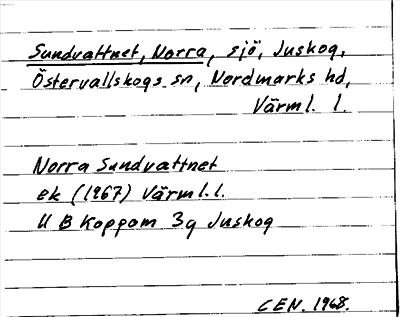 Sundvattnet, Norra, sjö, Juskog,
Östervallskogs sn, Nordmarks hd,
Värml. l.
Norra Sundvattnet
ek (1967) Värml.l.
U B Koppom 3g Juskog
CEN. 1968.